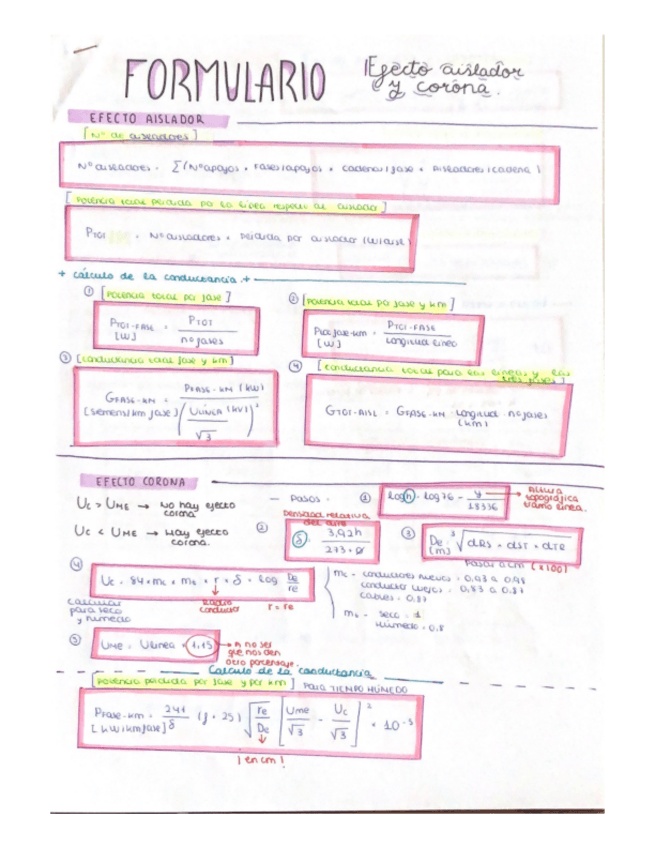 FORMULARIO
¡Efecto aislador
y corona.
EFECTO AISLADOR
[Nº de aisladores]
Nº aisladores = Σ (Nº apoyos × Fases/apoyos × cadena/fase × Aisladores/cadena)
[Potencia total perdida por la línea respecto al aislador]
PTOT = Nº aisladores × Pérdida por aislador (W/aisl)
+ cálculo de la conductancia +
① [potencia total por fase]
PTOT-FASE [W] = PTOT / nº fases
② [potencia total por fase y km]
[W] = PTOT-FASE / Longitud línea
③ [conductancia total fase y km]
GFASE-KM [siemens/km fase] = PFASE-KM (kW) / (ULÍNEA (kV) / √3)²
④ [conductancia total para las líneas y las tres fases]
GTOT-AISL = GFASE-KM · Longitud (km) · nº fases
EFECTO CORONA
Uc > UME → NO hay efecto corona
Uc < UME → Hay efecto corona.
— Pasos:
① log h = log 76 - y / 18336 → Altura topográfica tramo línea.
② Densidad relativa del aire
δ = 3,92h / 273 + θ
③ De (m) = ³√ dRS × dST × dTR
Pasar a cm (x100)
④ Uc = 84 × mc × mt × r × δ × log De / re
radio conductor
r = re
calcular para seco y húmedo
mc - conductores nuevos = 0,93 a 0,98
conductor viejos = 0,83 a 0,87
cables = 0,87
seco = 1
húmedo = 0,8
⑤ UME = Ulínea × 1,15 → A no ser que nos den otro porcentaje.
Calculo de la conductancia
[potencia perdida por fase y por km] PARA TIEMPO HÚMEDO
PFASE-KM [kW/km fase] = 241 / δ (f + 25) √ re / De [Ume / √3 - Uc / √3]² × 10⁻⁵
¡ en cm !